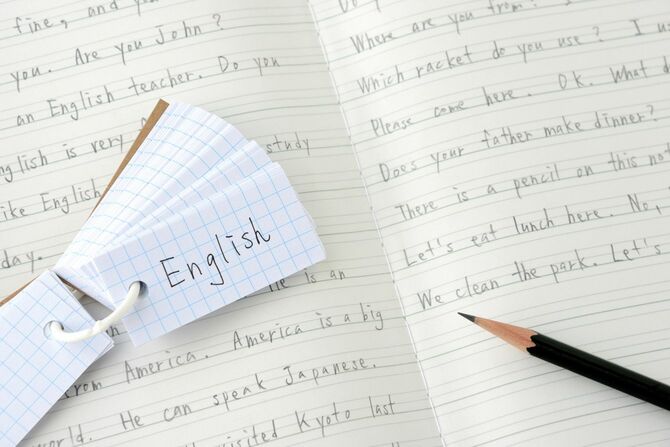 fine, and you
you. Are you John?
an English teacher. Do you
English is very
study
like English
day.
English
He is an
from America. America is a big
world. He can speak Japanese.
visited Kyoto last
Do y
Where are you from? I
Which racket do you use? I u
Please come here. OK. What d
Does your father make dinner?
There is a pencil on this not
Let's eat lunch here. No,
We clean the park. Let's